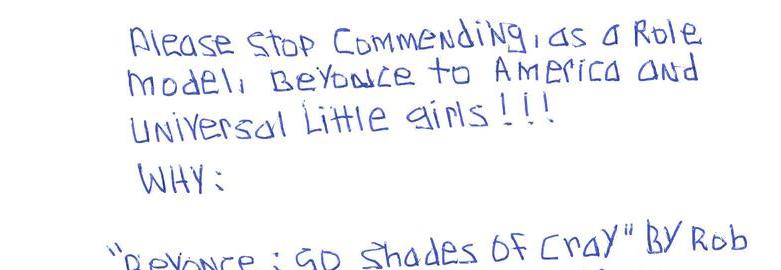 Please stop Commending, as a Role
model, Beyonce to America and
universal Little girls!!!
WHY:
"Beyonce: 50 shades of Cray" By Rob